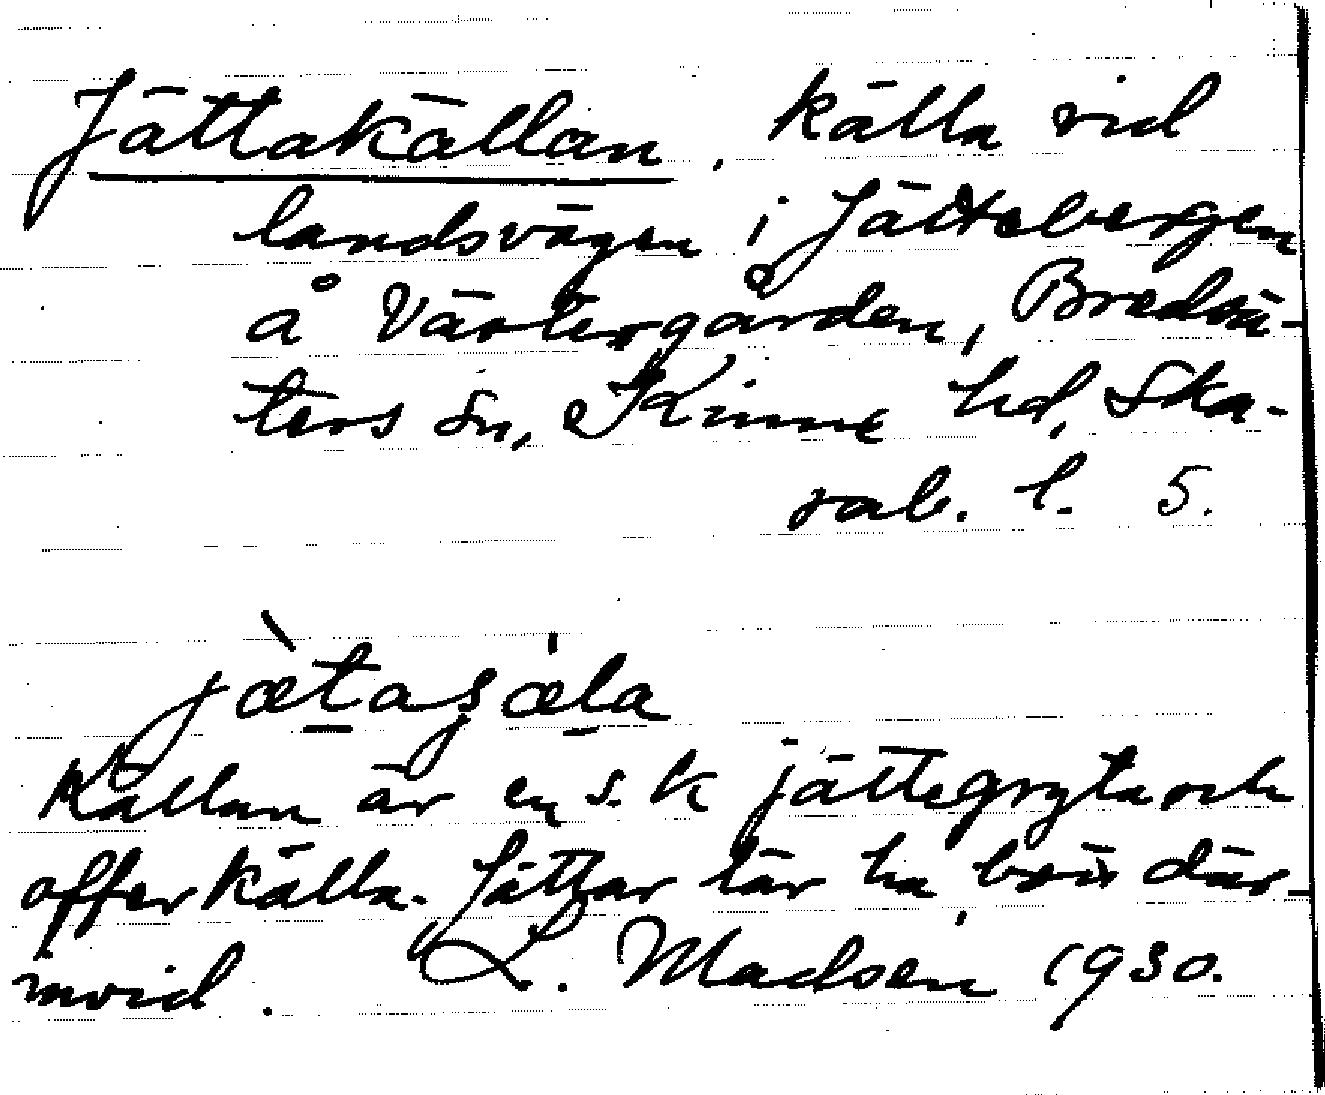 Jättakällan. källa vid
landsvägen i Jättebergen
å Västergården, Bredsä-
ters sn, Kinne hd, Ska-
rab. l. 5.
jætaʂæla
Källan är en s. k jättegryta och
offerkälla. Jättar lär ha bott där-
invid. L. Madsen 1930.